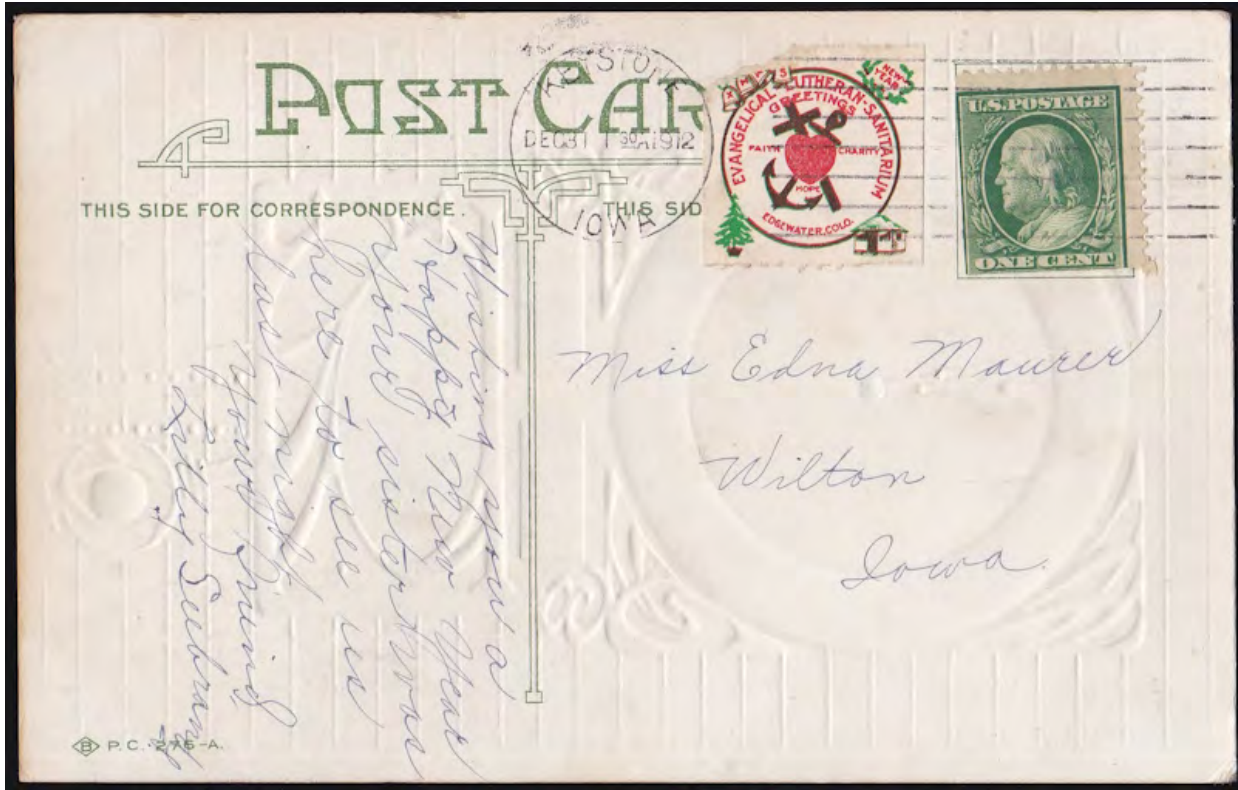 POST CAR
THIS SIDE FOR CORRESPONDENCE.
THIS SID
DEC 31 1 30A 1912
IOWA
XMAS
NEW YEAR
EVANGELICAL LUTHERAN SANITARIUM
GREETINGS
FAITH
CHARITY
HOPE
EDGEWATER, COLO.
U.S. POSTAGE
ONE CENT
Wishing you a
Happy New Year
Your sister was
here to see us
last night.
Your friend
Lilly
Miss Edna Maurer
Wilton
Iowa.
B P.C. 275-A.